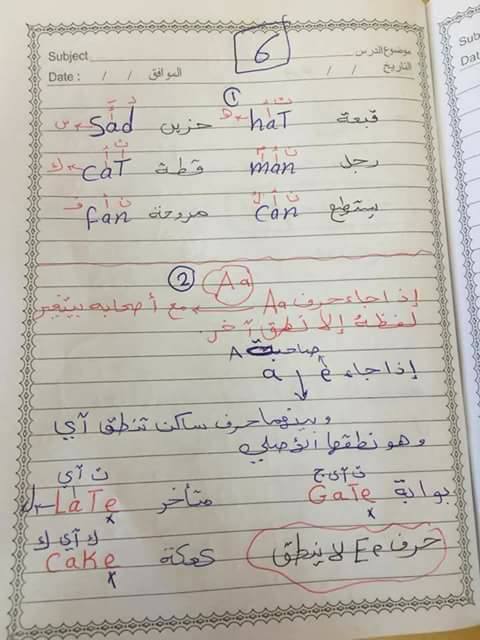 موضوع الدرس Subject 6
التاريخ / / الموافق / / Date :
①
قبعة hat حزين sad
رجل man قطة cat
يستطيع can مروحة fan
② Aa
إذا جاء حرف Aa مع أصحابه يتغير
لفظه إلا نطق آخر
صاحبة A
إذا جاء a e
وبينهما حرف ساكن تنطق آي
وهو نطقها الأصلي
ت آي ج ت آي
بوابة Gate متأخر Late ل
ك آي ك
حرف Ee لا ينطق كعكة cake